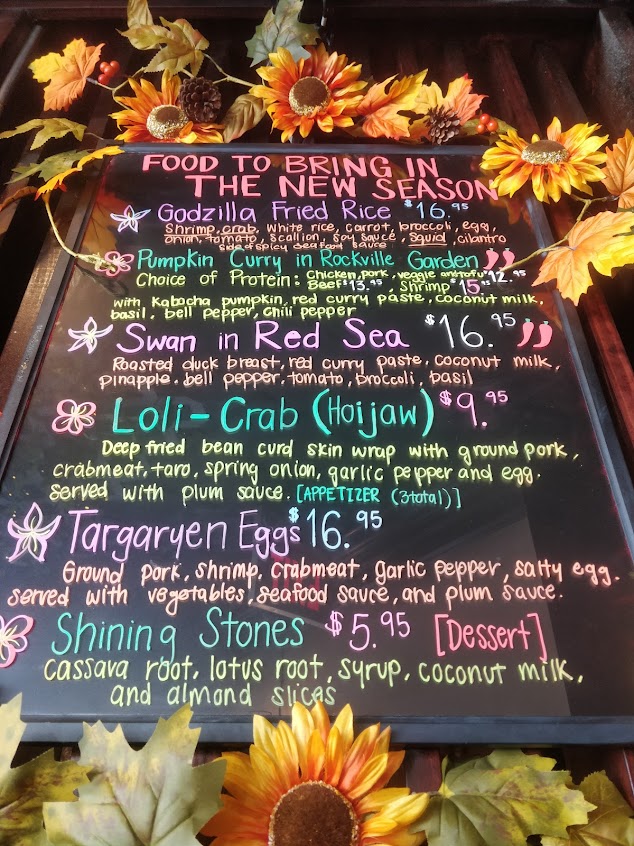 FOOD TO BRING IN
THE NEW SEASON
Godzilla Fried Rice $16.95
Shrimp, crab, white rice, carrot, broccoli, egg,
onion, tomato, scallion, soy sauce, squid, cilantro
side of spicy seafood sauce
Pumpkin Curry in Rockville Garden
Choice of Protein: Chicken, pork, veggie and tofu $12.95
Beef $13.95, Shrimp $15.95
with Kabocha pumpkin, red curry paste, coconut milk,
basil, bell pepper, chili pepper
Swan in Red Sea $16.95
Roasted duck breast, red curry paste, coconut milk,
pinapple, bell pepper, tomato, broccoli, basil
Loli-Crab (Hoijaw) $9.95
Deep fried bean curd skin wrap with ground pork,
crabmeat, taro, spring onion, garlic pepper and egg.
served with plum sauce. [APPETIZER (3 total)]
Targaryen Eggs $16.95
Ground pork, shrimp, crabmeat, garlic pepper, salty egg.
served with vegetables, seafood sauce, and plum sauce.
Shining Stones $5.95 [Dessert]
cassava root, lotus root, syrup, coconut milk,
and almond slices